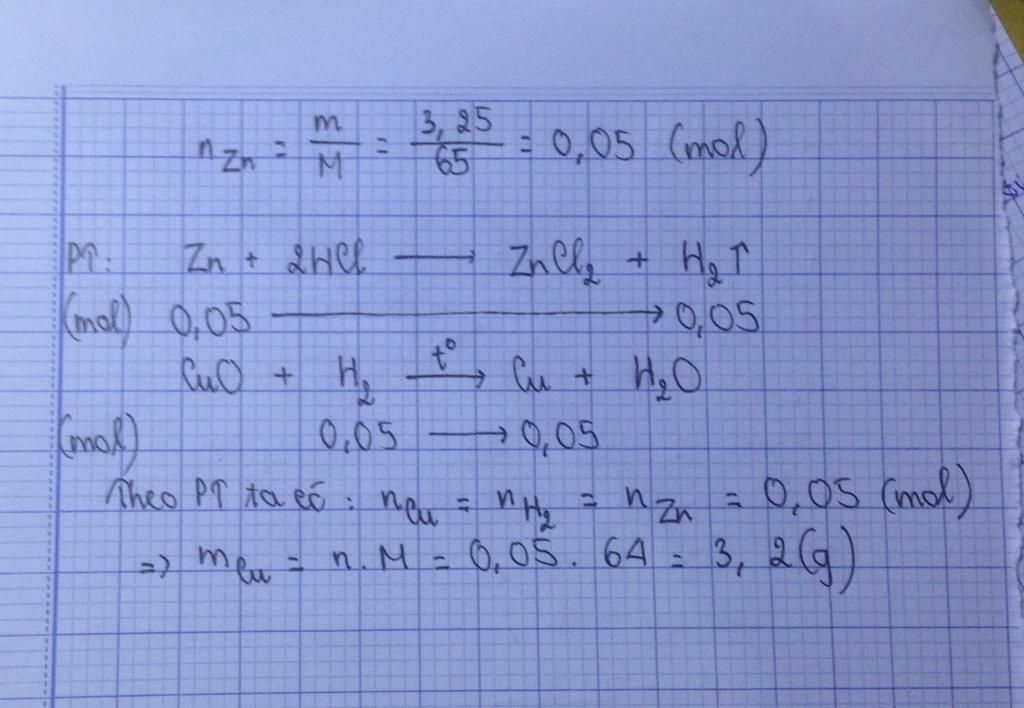 n_Zn = m/M = 3,25/65 = 0,05 (mol)
PT: Zn + 2HCl ⟶ ZnCl₂ + H₂↑
(mol) 0,05 ⟶ 0,05
CuO + H₂ —t°→ Cu + H₂O
(mol) 0,05 ⟶ 0,05
Theo PT ta có : n_Cu = n_H₂ = n_Zn = 0,05 (mol)
=> m_Cu = n.M = 0,05. 64 = 3,2(g)